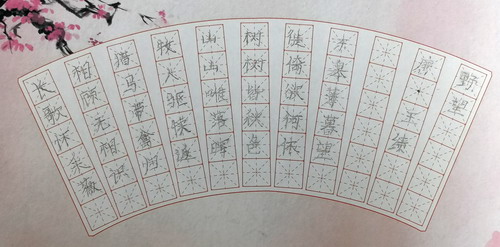 野望
唐·王绩
东皋薄暮望
徙倚欲何依
树树皆秋色
山山唯落晖
牧人驱犊返
猎马带禽归
相顾无相识
长歌怀采薇